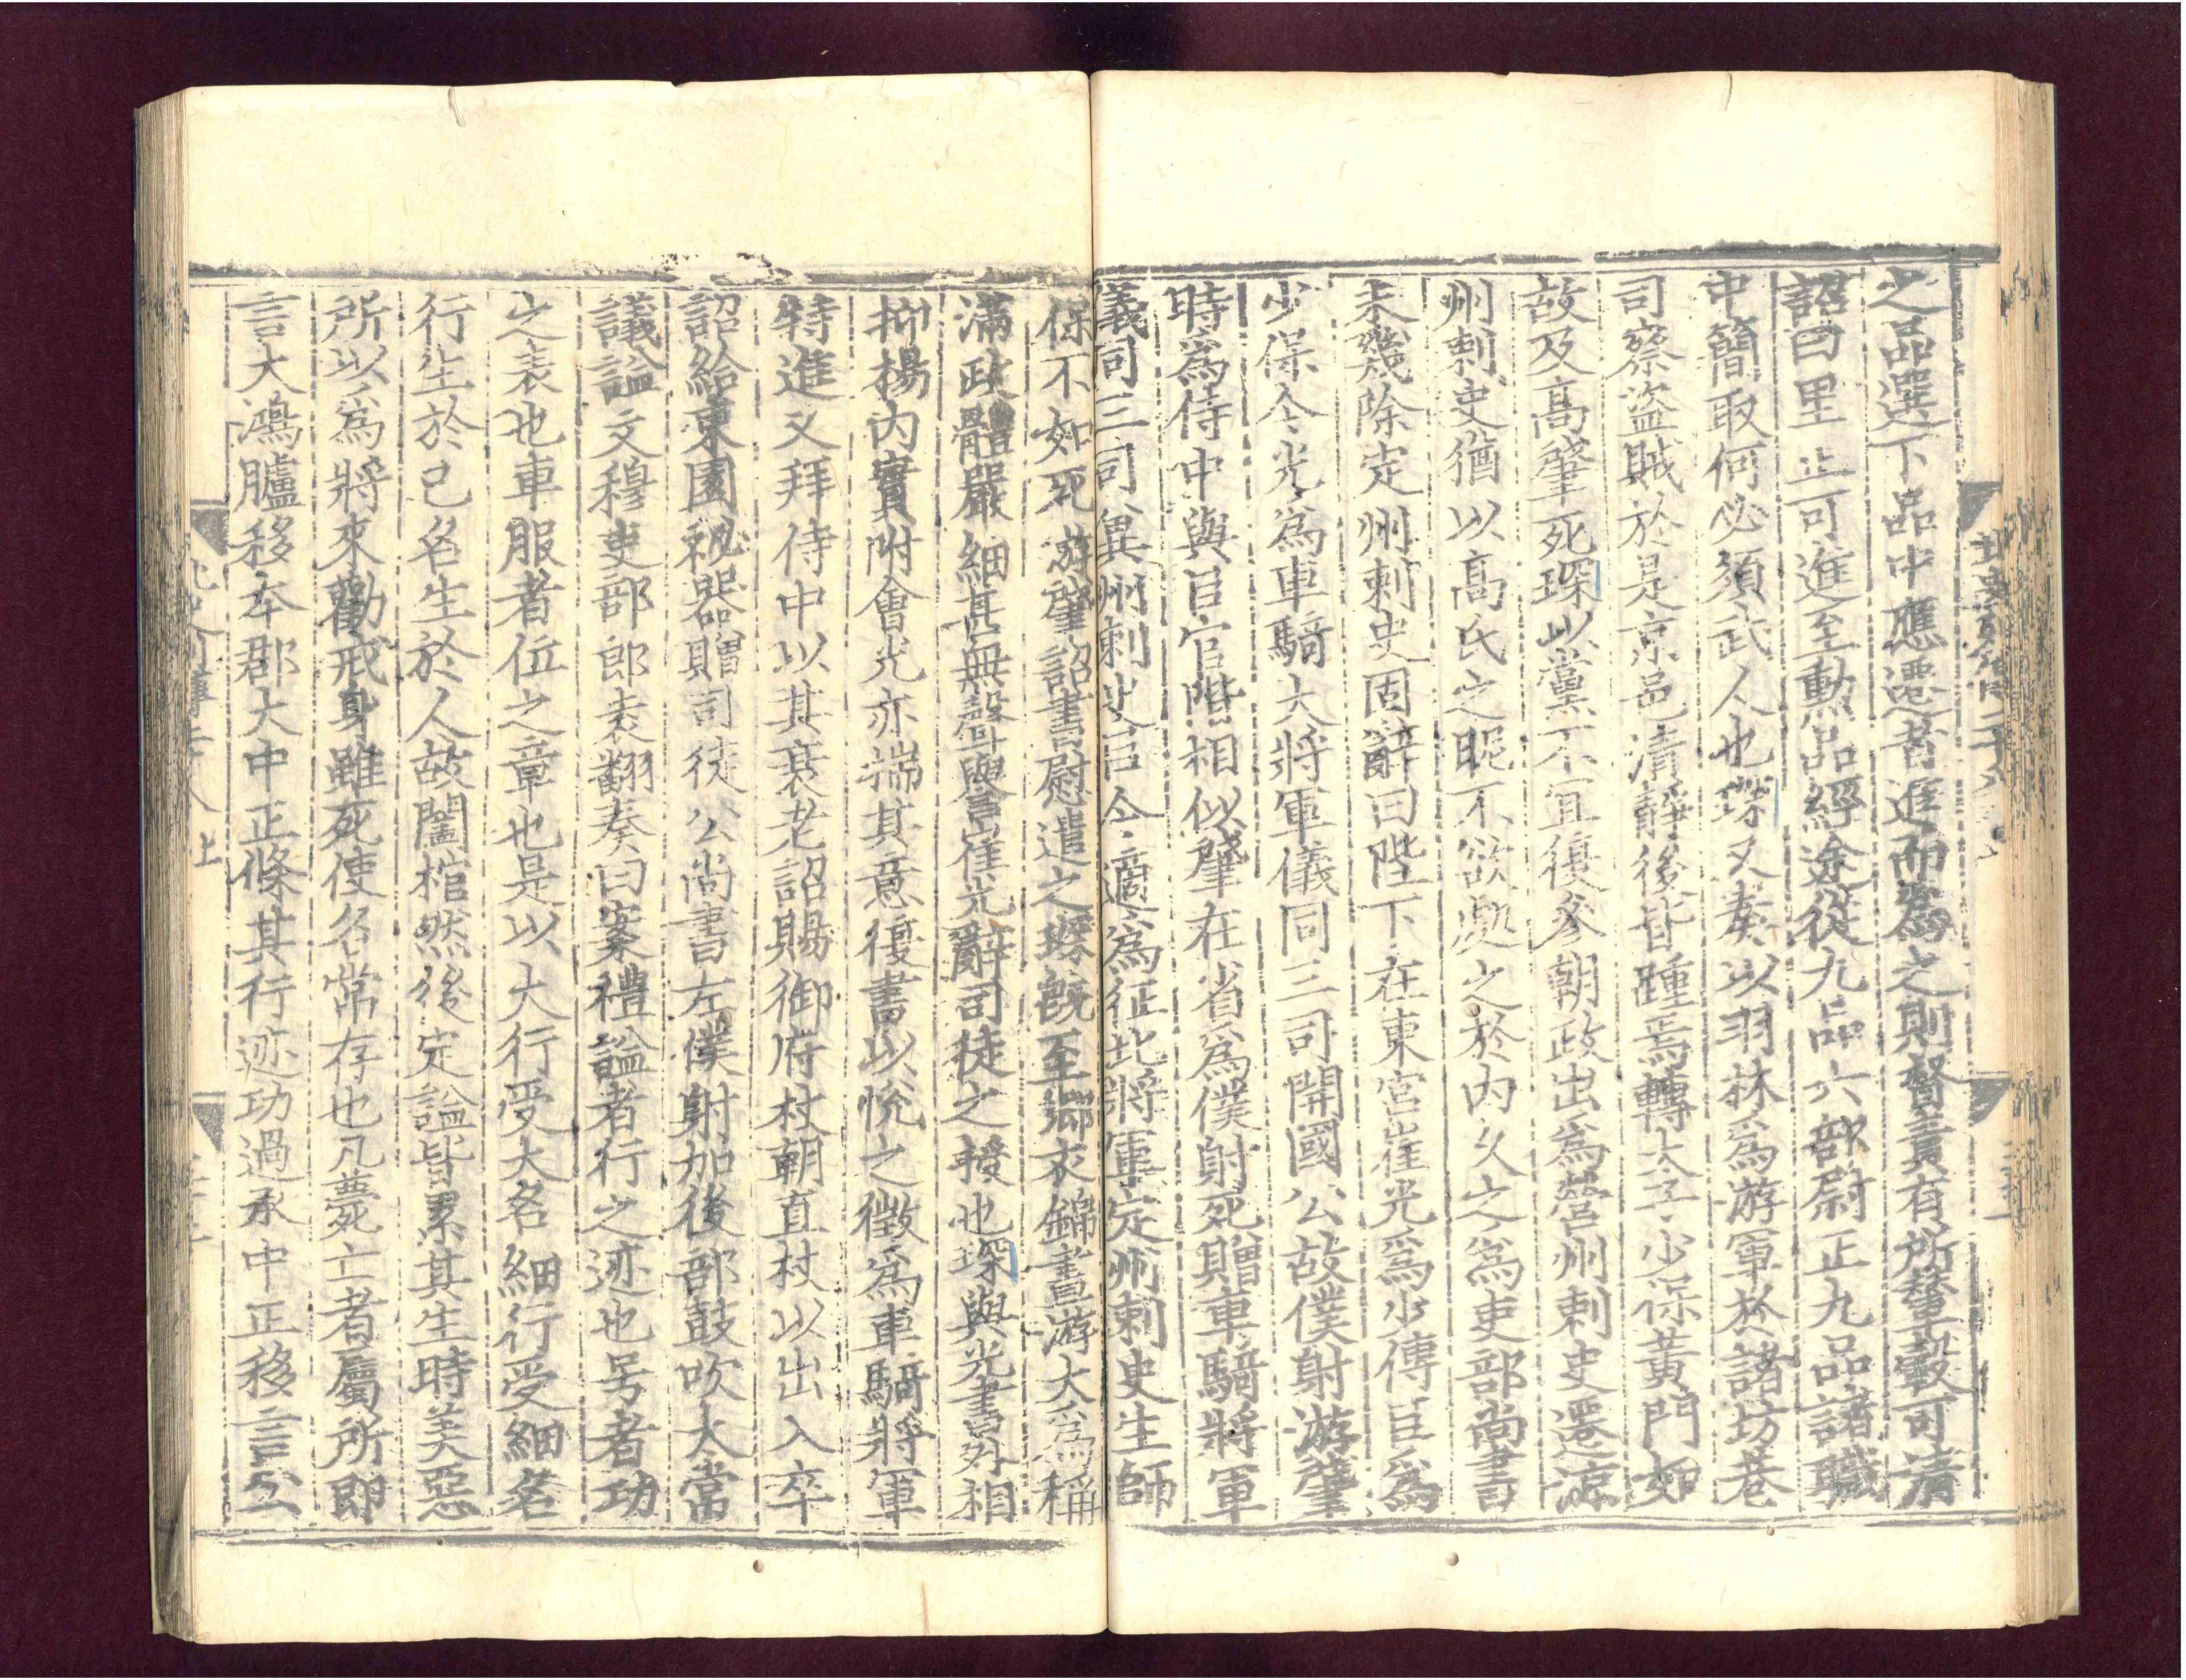 之品選下品中應遷者進而爲之則督責有所輦轂可清
詔曰里正可進至勲品經途從九品六部尉正九品諸職
中簡取何必須武人也琛又奏以羽林爲游軍於諸坊巷
司察盗賊於是京邑清靜後皆踵焉轉太子少保黃門如
故及高肇死琛以黨不宜復參朝政出爲營州刺史遷涼
州刺史猶以高氏之昵不欲處之於内久之爲吏部尚書
未幾除定州刺史固辭曰陛下在東宮崔光爲少傅臣爲
少保今光爲車騎大將軍儀同三司開國公故僕射游肇
時爲侍中與臣官階相似肇在省爲僕射死贈車騎將軍
儀同三司兾州刺史臣今適爲征北將軍定州刺史生師
保不如死游肇詔書慰遣之琛既至鄉衣錦晝游大爲稱
滿政體嚴細甚無聲譽崔光辭司徒之授也琛與光書外相
抑揚内實附會光亦揣其意復書以悅之徵爲車騎將軍
特進又拜侍中以其衰老詔賜御府杖朝直杖以出入卒
詔給東園秘器贈司徒公尚書左僕射加後部鼓吹太常
議謚文穆吏部郎袁翻奏曰案禮謚者行之迹也号者功
之表也車服者位之章也是以大行受大名細行受細名
行生於己名生於人故闔棺然後定謚皆累其生時美惡
所以爲將來勸戒身雖死使名常存也凡薨亡者屬所即
言大鴻臚移本郡大中正條其行迹功過承中正移言公